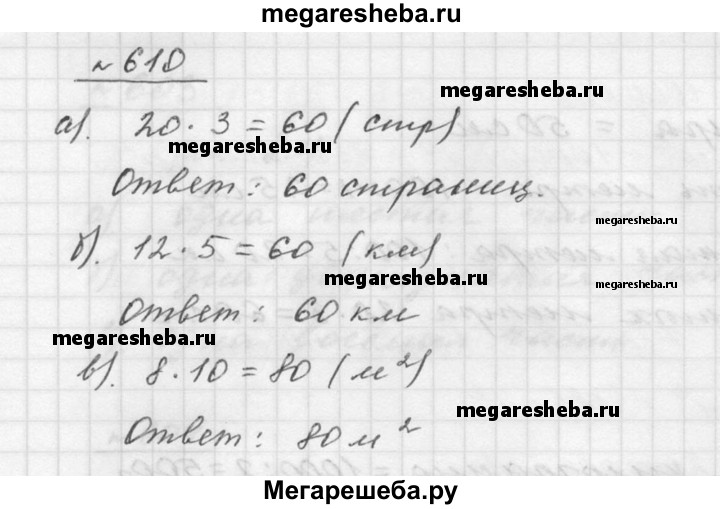 megaresheba.ru
№ 618
megaresheba.ru
а). 20 · 3 = 60 (стр)
megaresheba.ru
Ответ: 60 страниц.
megaresheba.ru
б). 12 · 5 = 60 (км)
megaresheba.ru
megaresheba.ru
Ответ: 60 км
megaresheba.ru
в). 8 · 10 = 80 (м²)
megaresheba.ru
Ответ: 80 м²
Мегарешеба.ру